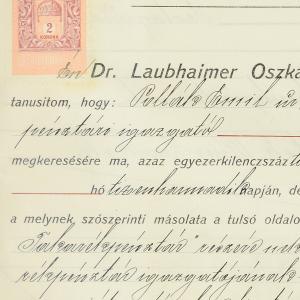 2
KORONA
Én Dr. Laubhaimer Oszká
tanusitom, hogy: Pollák Emil úr
pénztári igazgató
megkeresésére ma, azaz egyezerkilenczszáz ti
hó tizenharmadik napján, de
a melynek, szószerinti másolata a tulsó oldalo
Takarékpénztár" részére
rékpénztár igazgatójának